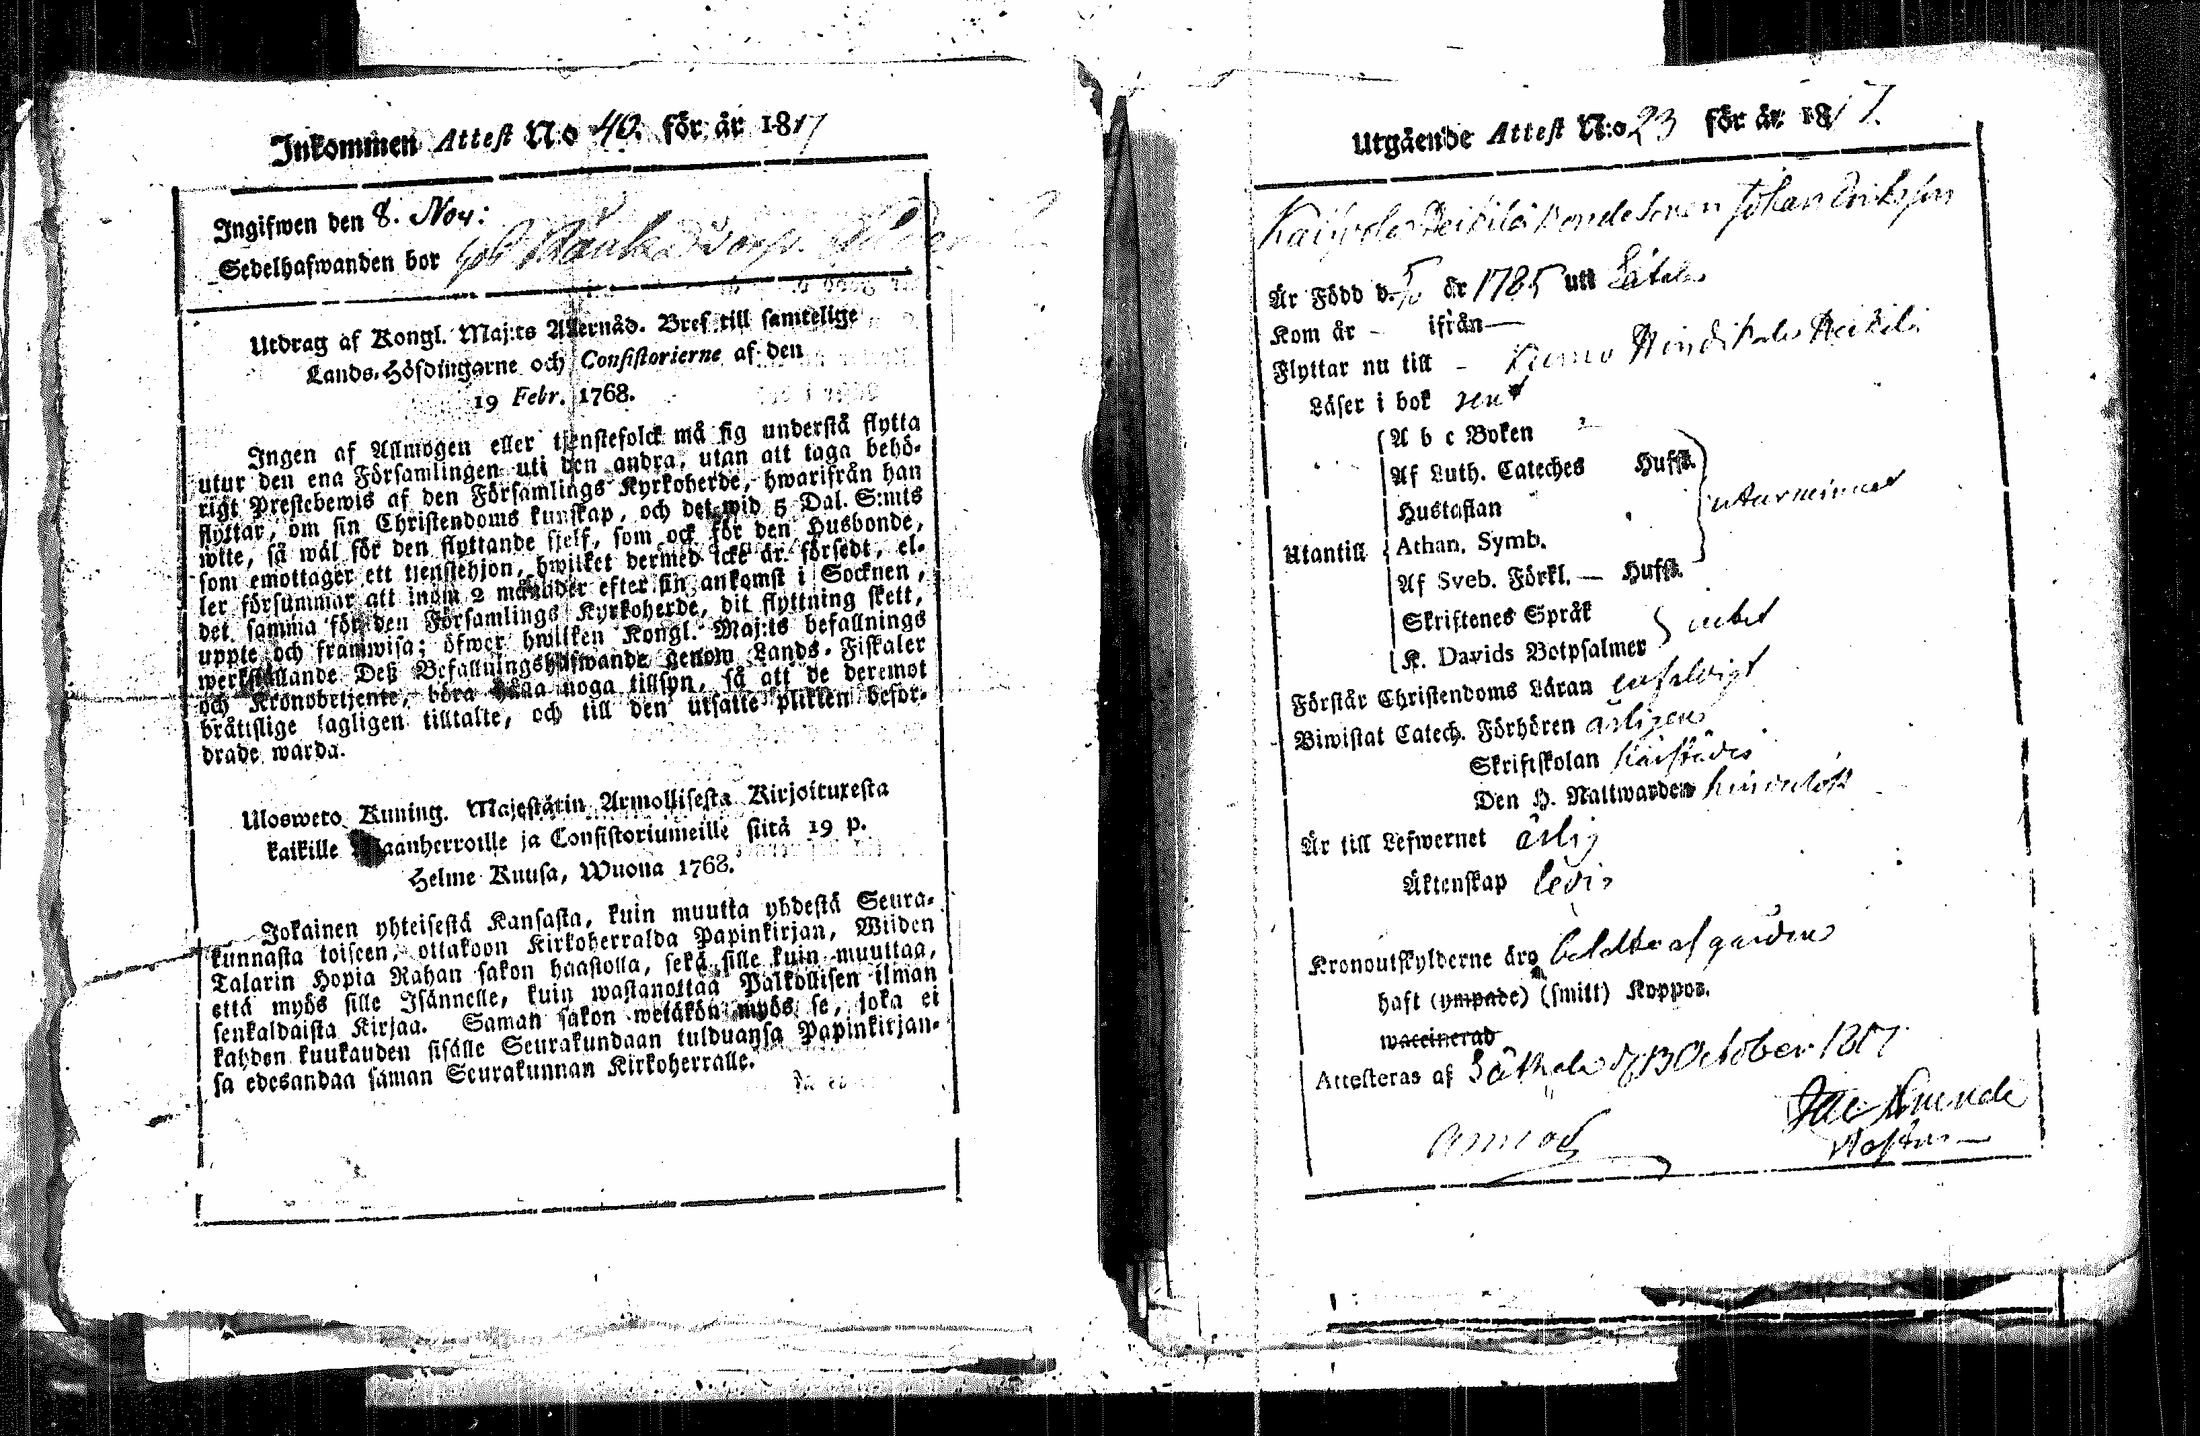 Inkommen Attest N:o 40. för år 1817
Ingifwen den 8. Nov:
Sedelhafwanden bor
Utdrag af Kongl. Maj:ts Allernåd. Bref till samtelige
Lands-Höfdingarne och Consistorierne af den
19 Febr. 1768.
Ingen af Allmogen eller tjenstefolck må sig understå flytta
utur den ena Församlingen uti den andra, utan att taga behö-
rigt Prestebewis af den Församlings Kyrkoherde, hwarifrån han
flyttar, om sin Christendoms kunskap, och det wid 5 Dal. S:mts
wite, så wäl för den flyttande sjelf, som ock för den Husbonde,
som emottager ett tjenstehjon, hwilket dermed icke är försedt, el-
ler försummar att inom 2 månader efter sin ankomst i Socknen,
det samma för den Församlings Kyrkoherde, dit flyttning skett,
uppte och framwisa; öfwer hwilken Kongl. Maj:ts befallnings
werkställande Deß Befallningshafwande genom Lands-Fiskaler
och Kronobetjente, böra hålla noga tillsyn, så att de deremot
bråttslige lagligen tilltalte, och till den utsatte plikten befor-
drade warda.
Ulosweto Kuning. Majestätin Armollisesta Kirjoituxesta
kaikille Maanherroille ja Consistoriumeille siitä 19 p.
Helme Kuusa, Wuona 1768.
Jokainen yhteisestä Kansasta, kuin muutta yhdestä Seura-
kunnasta toiseen, ottakoon Kirkoherralda Papinkirjan, Wiiden
Talarin Hopia Rahan sakon haastolla, sekä sille kuin muuttaa,
että myös sille Isännelle, kuin wastanottaa Palkollisen ilman
senkaldaista Kirjaa. Saman sakon wetäkön myös se, joka ei
kahden kuukauden sisälle Seurakundaan tulduansa Papinkirjan-
sa edesandaa saman Seurakunnan Kirkoherralle.
Utgående Attest N:o 23 för år 1817.
Bondesonen Johan Eriksson
Är Född d. år 1785 uti
Kom år - ifrån —
Flyttar nu till - Kumo
Läser i bok rent
A b c Boken
Af Luth. Cateches Hufst.
Hustaflan
Utantill Athan. Symb.
Af Sveb. Förkl. — Hufst.
Skriftenes Språk
K. Davids Botpsalmer intet
Förstår Christendoms Läran enfaldigt
Biwistat Catech. Förhören årligen
Skriftskolan
Den H. Nattwarden
Är till Lefwernet ärlig
Äktenskap ledig
Kronoutskylderne äro betalte af gården
haft (ympade) (smitt) Koppor.
waccinerad
Attesteras af Säkylä d. 13 October 1817